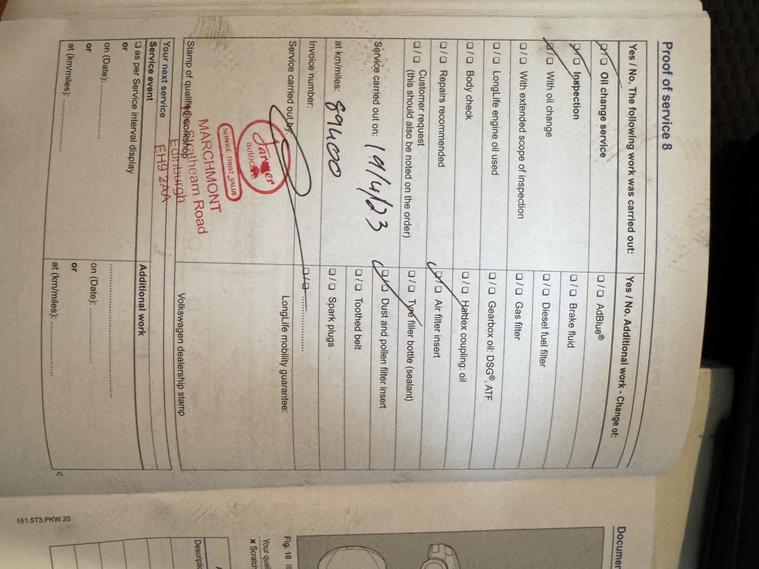 Proof of service 8
Yes / No. The following work was carried out:
☐ / ☐ Oil change service
☐ / ☐ Inspection
☐ / ☐ With oil change
☐ / ☐ With extended scope of inspection
☐ / ☐ LongLife engine oil used
☐ / ☐ Body check
☐ / ☐ Repairs recommended
☐ / ☐ Customer request
(this should also be noted on the order)
Service carried out on: 19/4/23
at km/miles: 89400
Invoice number:
Service carried out by:
Farmer
autocare
SERVICE TRUST VALUE
MARCHMONT
Strathearn Road
Edinburgh
EH9 2AA
Stamp of qualified workshop
Yes / No. Additional work - Change of:
☐ / ☐ AdBlue®
☐ / ☐ Brake fluid
☐ / ☐ Diesel fuel filter
☐ / ☐ Gas filter
☐ / ☐ Gearbox oil: DSG®, ATF
☐ / ☐ Haldex coupling: oil
☐ / ☐ Air filter insert
☐ / ☐ Tyre filler bottle (sealant)
☐ / ☐ Dust and pollen filter insert
☐ / ☐ Toothed belt
☐ / ☐ Spark plugs
☐ / ☐ ................
LongLife mobility guarantee:
Volkswagen dealership stamp
Your next service
Service event
☐ as per Service interval display
or
on (Date): ................
or
at (km/miles): ................
Additional work
................................
on (Date): ................
or
at (km/miles): ................
151.5T3.PKW.20
Docume
Fig. 10
Your
x Scratch
Descripti